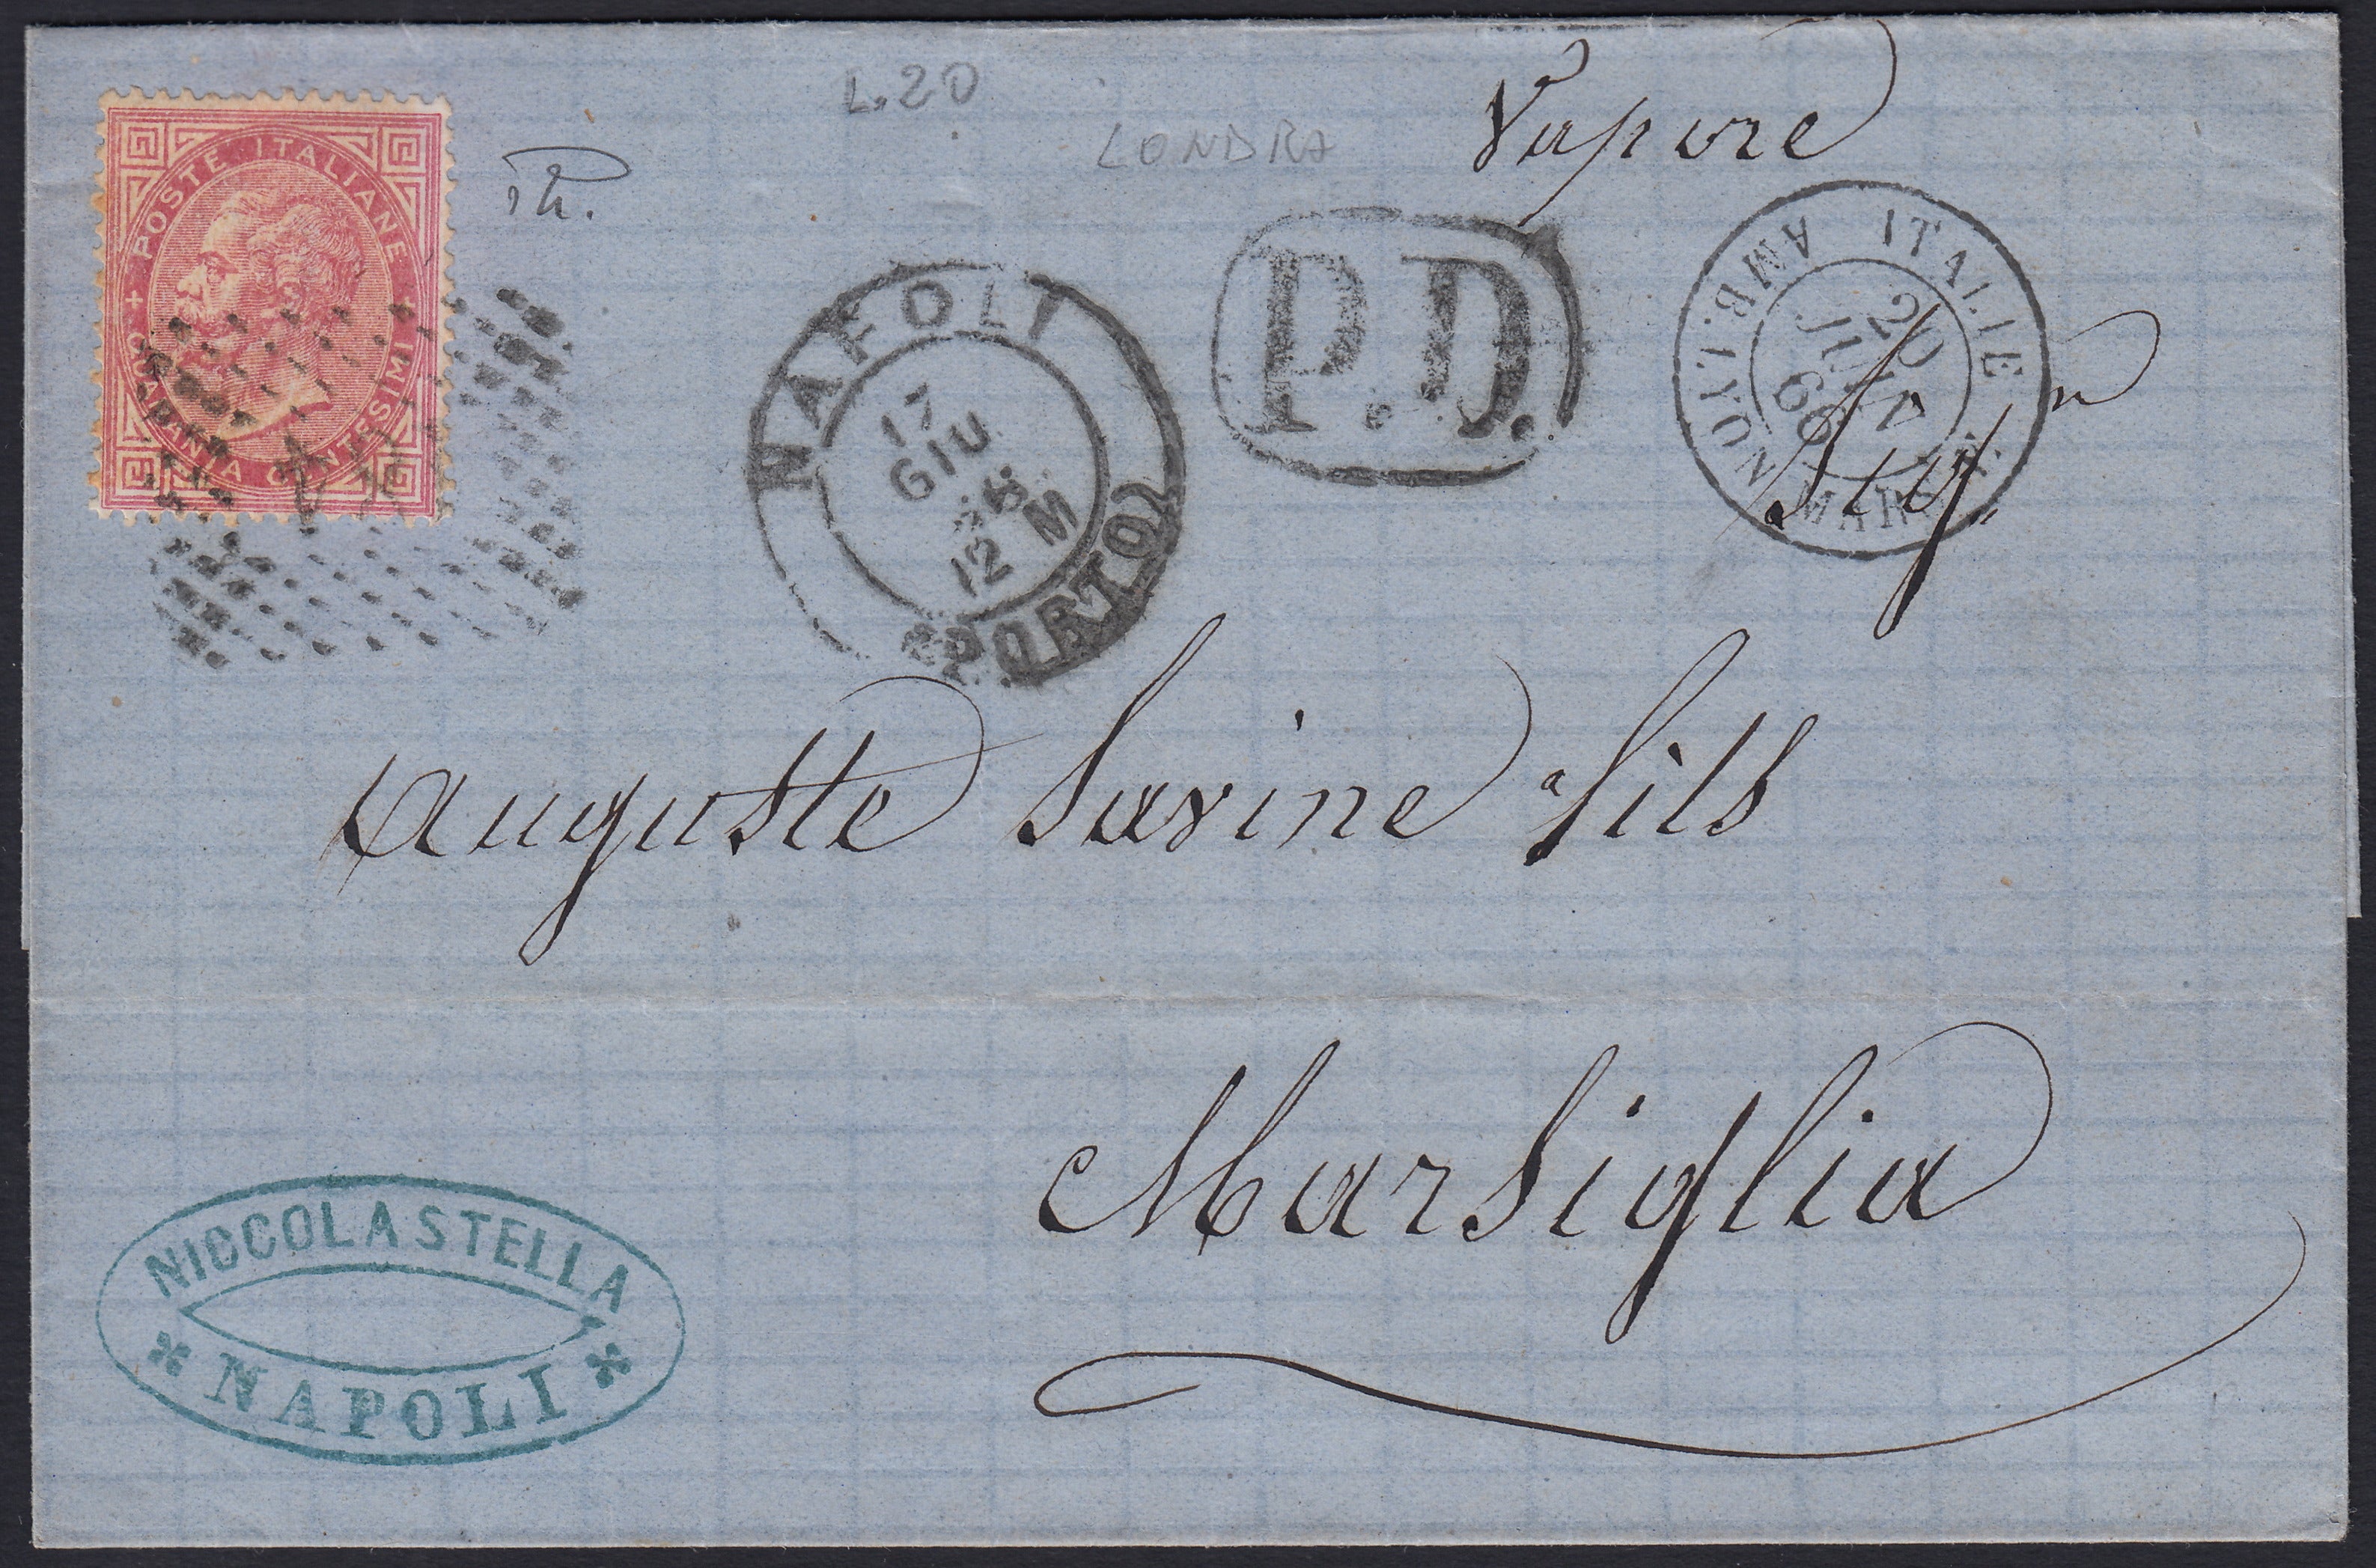 L. 20
LONDRA
Vapore
POSTE ITALIANE
QUARANTA CENTESIMI
NAPOLI
17
GIU
12 M
(PORTO)
P.D.
ITALIE
AMB. LYON MARS.
20
JUIN
66
Sigr
Auguste Savine fils
Marsiglia
NICCOLA STELLA
NAPOLI